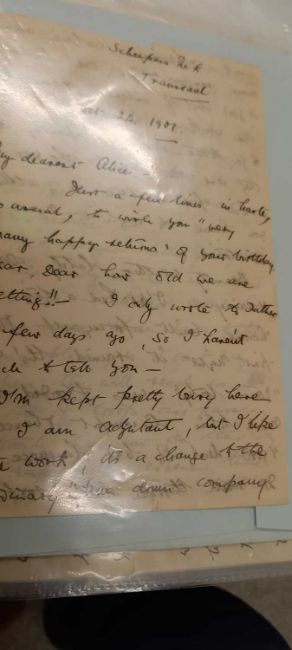 Scheepers Nek
Transvaal
Oct. 24. 1901.
My dearest Alice –
Just a few lines in haste,
as usual, to wish you "very
many happy returns" of your birthday.
dear, dear how old we are
getting!! – I only wrote to
few days ago, so I haven't
much to tell you –
I'm kept pretty busy here
I am adjutant, but I like
the work, its a change to the
ordinary drum company